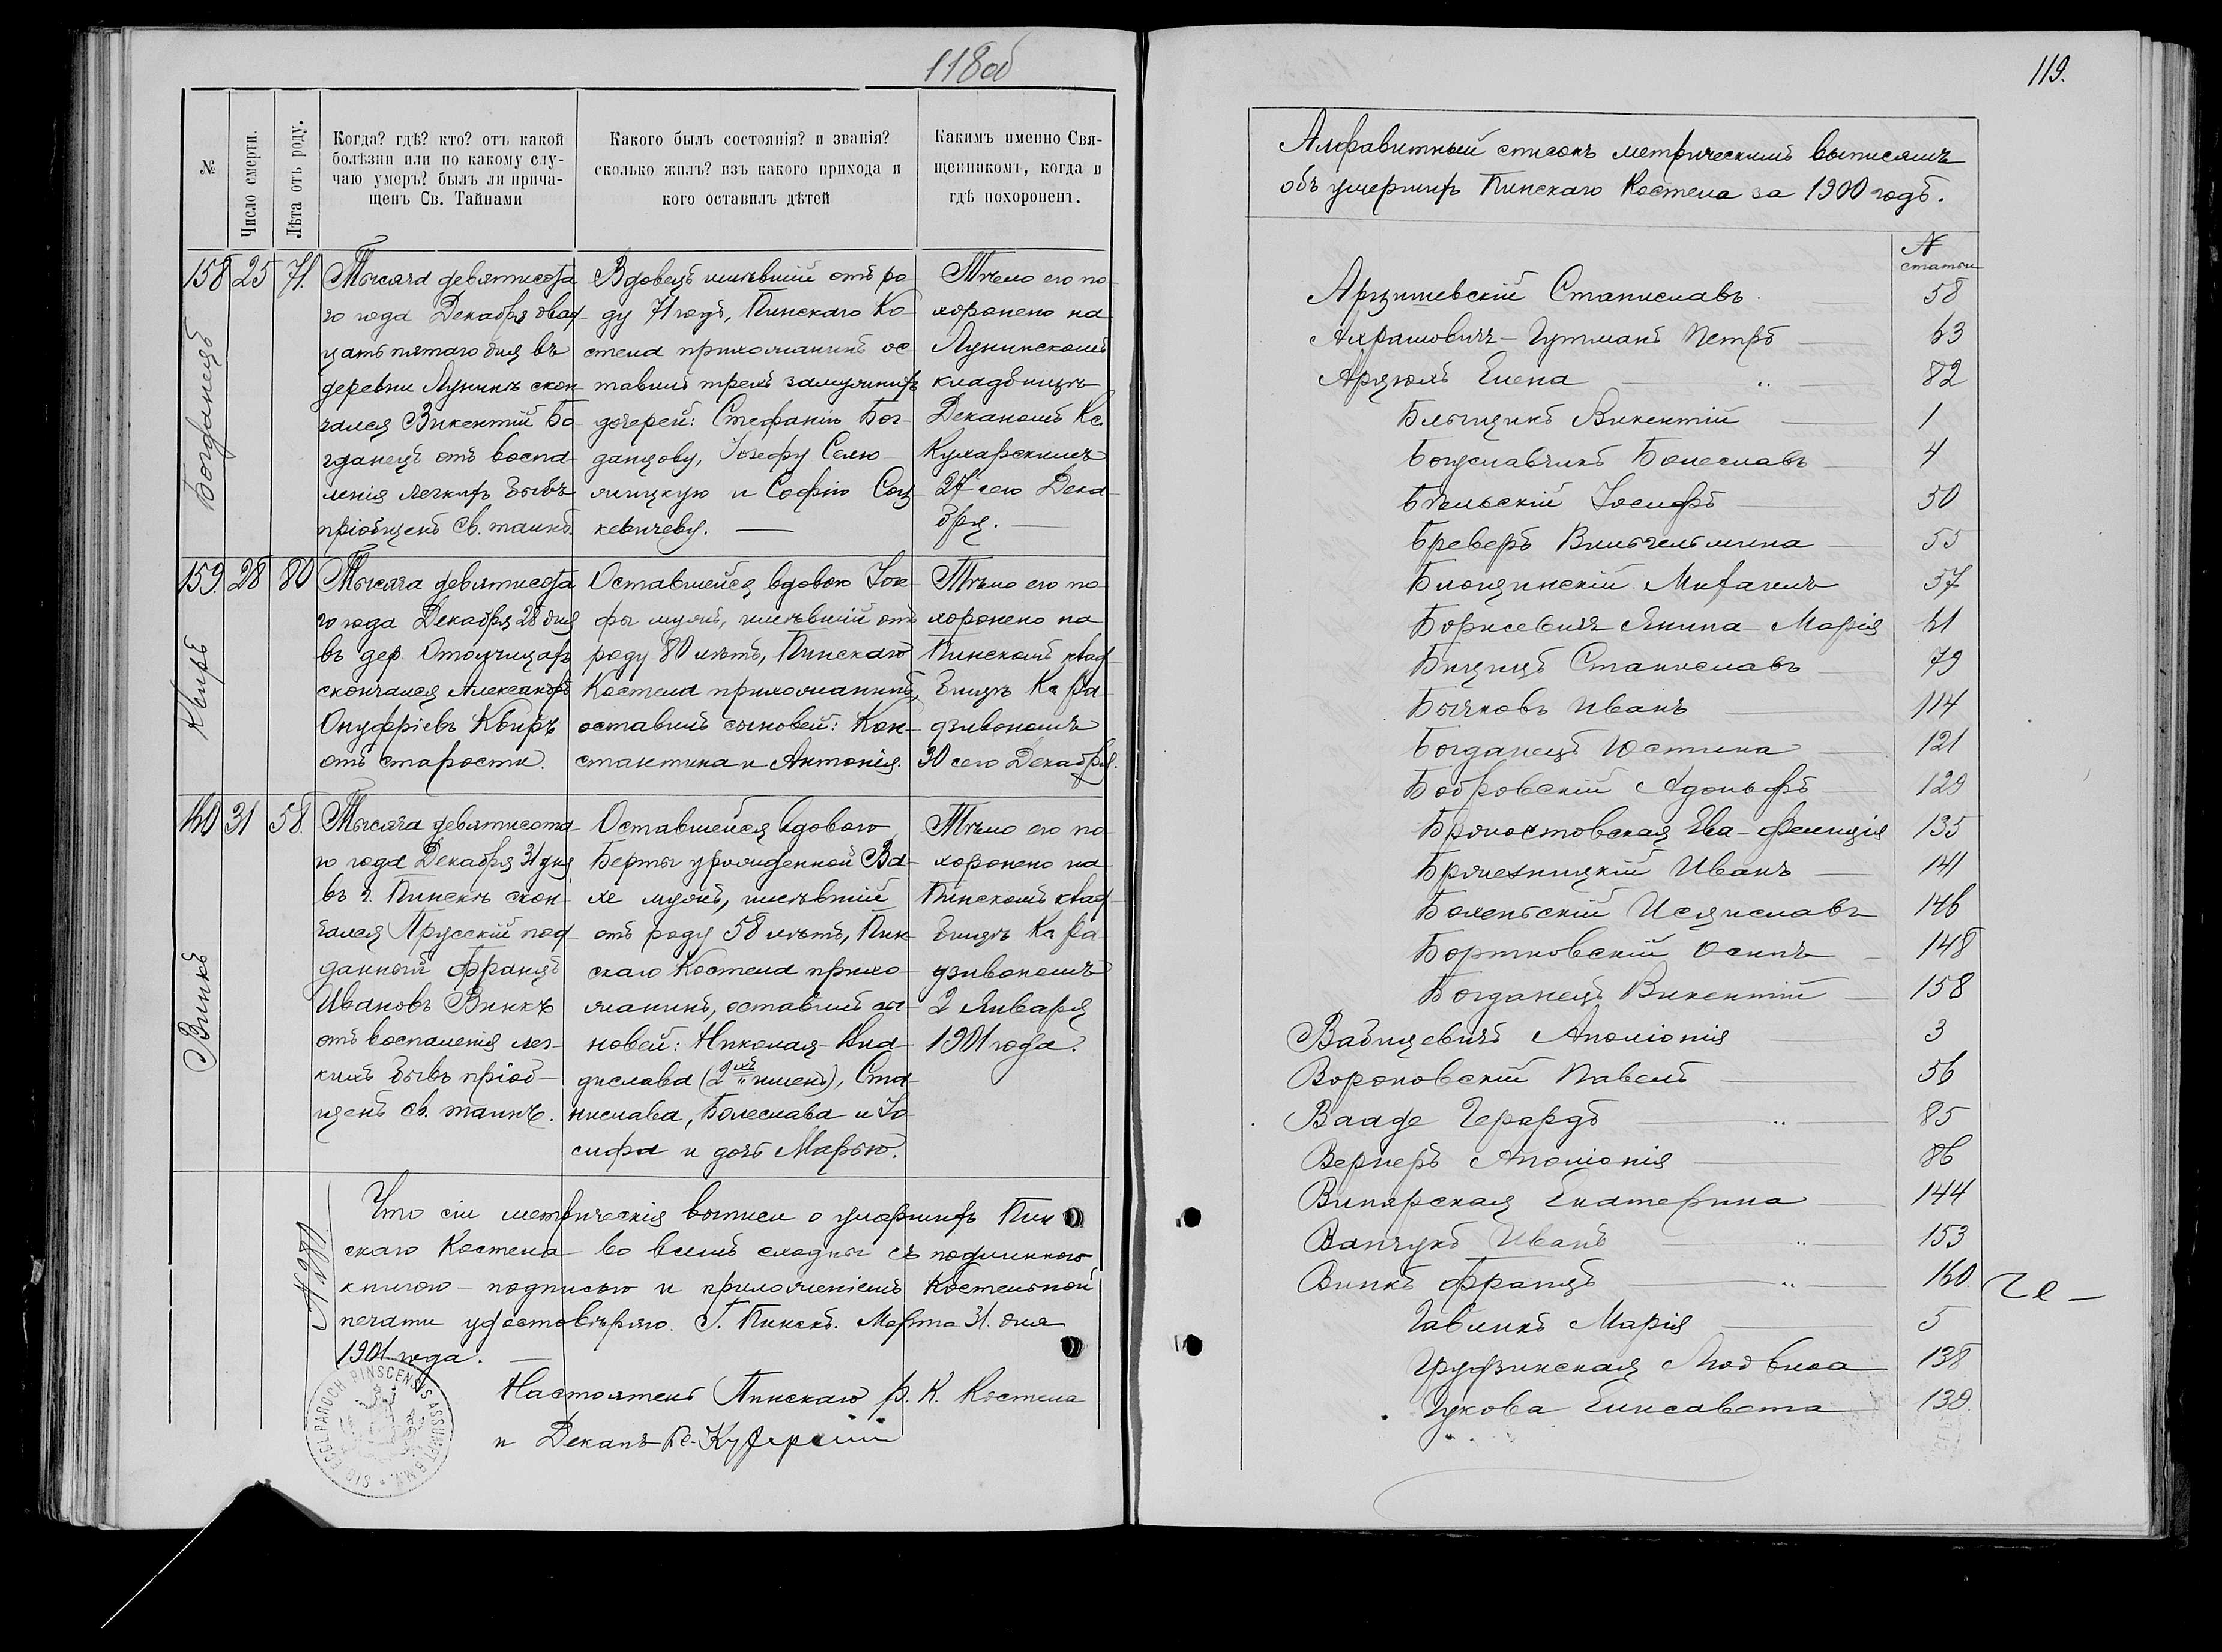 118 об
№
Число смерти.
Лѣта отъ роду.
Когда? гдѣ? кто? отъ какой
болѣзни или по какому слу-
чаю умеръ? былъ ли прича-
щенъ Св. Тайнами
Какого былъ состоянія? и званія?
сколько жилъ? изъ какого прихода и
кого оставилъ дѣтей
Какимъ именно Свя-
щенникомъ, когда и
гдѣ похороненъ.
158 25 71.
Богданецъ
Тысяча девятисота
го года Декабря двад-
цать пятаго дня въ
деревни Лунинѣ скон-
чался Викентій Бо-
гданецъ отъ воспа-
ленія легкихъ бывъ
пріобщенъ св. таинъ
Вдовецъ имѣвшій отъ ро-
ду 71 годъ, Пинскаго Ко-
стела прихожанинъ ос-
тавилъ трехъ замужнихъ
дочерей: Стефанію Бог-
данцову, Іозефу
и Софію
кевичеву. —
Тѣло его по-
хоронено на
Лунинскомъ
кладбищѣ
Деканомъ Кс.
Кухарскимъ
27 сего Дека-
бря. —
159. 28 80
Квиръ
Тысяча девятисота
го года Декабря 28 дня
въ дер. Отолчицахъ
скончался Александръ
Онуфріевъ Квиръ
отъ старости.
Оставшейся вдовою Іозе-
фы мужъ, имѣвшій отъ
роду 80 лѣтъ, Пинскаго
Костела прихожанинъ,
оставилъ сыновей: Кон-
стантина и Антонія.
Тѣло его по-
хоронено на
Пинскомъ клад-
бищѣ Кс. Ра-
дзивономъ
30 сего Декабря.
160 31 58.
Винкъ
Тысяча девятисота-
го года Декабря 31 дня
въ г. Пинскѣ скон-
чался Прусскій под-
данный Францъ
Ивановъ Винкъ
отъ воспаленія лег-
кихъ бывъ пріоб-
щенъ св. таинъ.
Оставшейся вдовою
Берты урожденной Ва-
хе мужъ, имѣвшій
отъ роду 58 лѣтъ, Пин-
скаго Костела прихо-
жанинъ, оставилъ сы-
новей: Николая-Вла-
дислава (2хъ именъ), Ста-
нислава, Болеслава и Іо-
сифа и дочь Марью.
Тѣло его по-
хоронено на
Пинскомъ клад-
бищѣ Кс. Ра-
дзивономъ
2 Января
1901 года.
№ 280.
Что сіи метрическія выписи о умершихъ Пин-
скаго Костела во всемъ сходны съ подлинною
книгою - подписью и приложеніемъ Костельной
печати удостовѣряю. Г. Пинскъ. Марта 31. дня
1901 года. —
Настоятель Пинскаго Р. К. Костела
и Деканъ Кс. Кухарскій
SIG. ECCL. PAROCH. PINSCENSIS ASSUMPT. B.M.V.
119.
Алфавитный списокъ метрическимъ выписямъ
объ умершихъ Пинскаго Костела за 1900 годъ.
№
статьи
Станиславъ 58
Абрамовичъ-Гутманъ Петръ 63
Елена 82
Блыщикъ Викентій 1
Богуславчикъ Болеславъ 4
Бѣльскій Іосифъ 50
Бреверъ Вильгельмина 55
Блощинскій Михаилъ 57
Борисевичъ Янина-Марія 61
Бицицъ Станиславъ 79
Бычковъ Иванъ 114
Богданецъ Юстина 121
Бобровскій Адольфъ 129
Бржостовская Ева-Фелиція 135
Иванъ 141
146
Бортновскій Осипъ 148
Богданецъ Викентій 158
Вабищевичъ Аполіонія 3
Вороновскій Павелъ 56
Вааде Герардъ 85
Вернеръ Аполіонія 86
Винярская Екатерина 144
Ванчукъ Иванъ 153
Винкъ Францъ 160
Гавликъ Марія 5
Грудзинская Людвика 138
Гукова Елисавета 130.